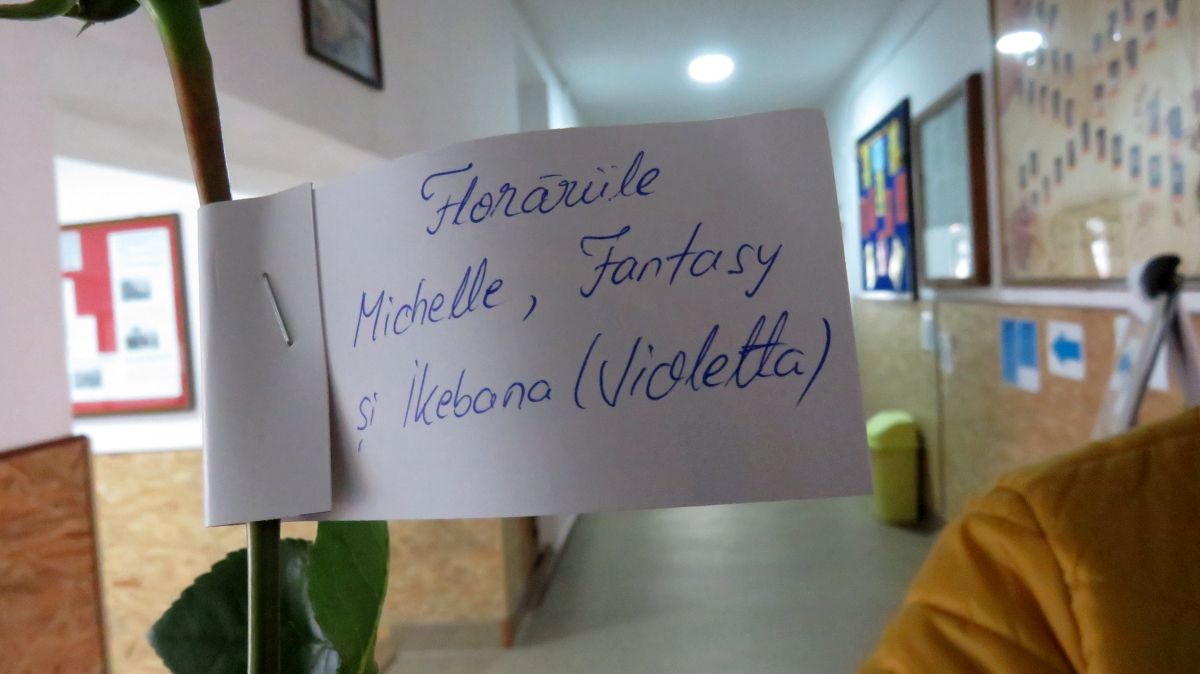 Florăriile
Michelle, Fantasy
și Ikebana (Violetta)